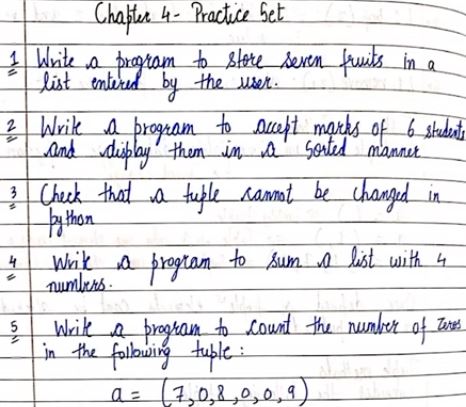 Chapter 4 - Practice Set
1 Write a program to store seven fruits in a
list entered by the user.
2 Write a program to accept marks of 6 students
and display them in a sorted manner
3 Check that a tuple cannot be changed in
python
4 Write a program to sum a list with 4
numbers.
5 Write a program to count the number of zeros
in the following tuple:
a = (7,0,8,0,0,9)